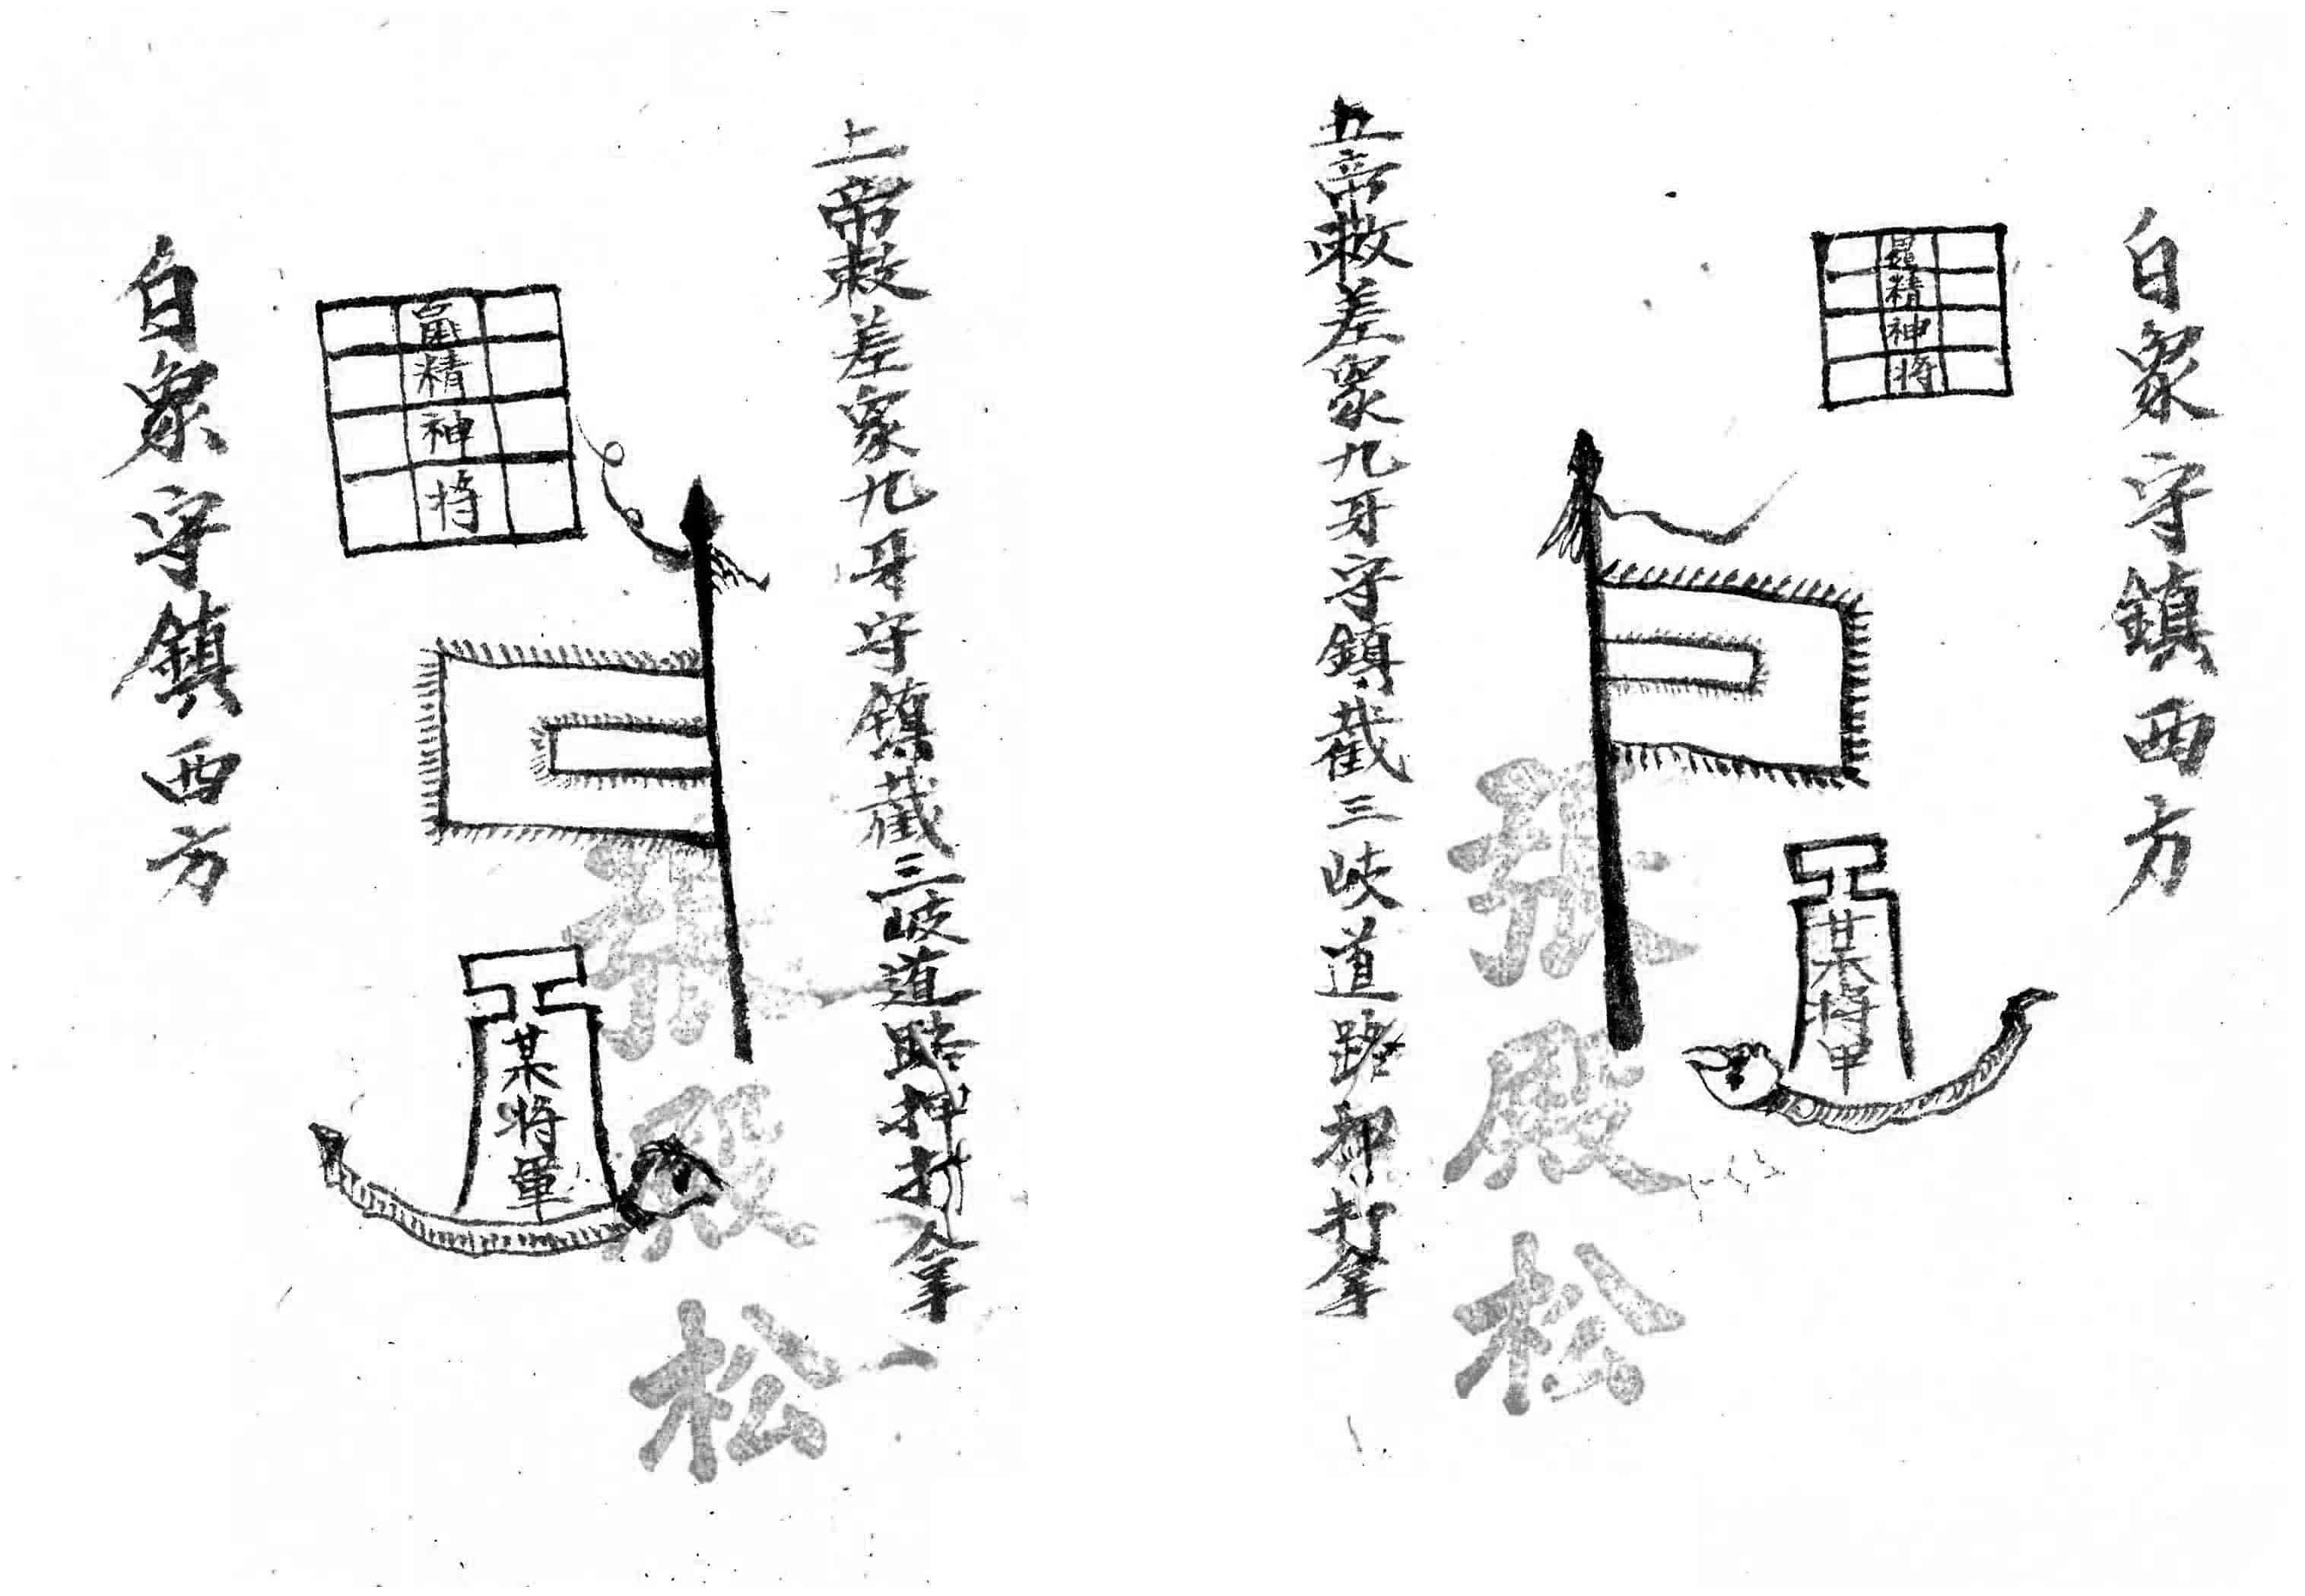 白象守鎮西方
精神將
某將甲
五帝敕差象九牙守鎮截三岐道路押打拿
張殿松
上帝敕差象九牙守鎮截三岐道路押打拿
精神將
某將軍
張殿松
白象守鎮西方